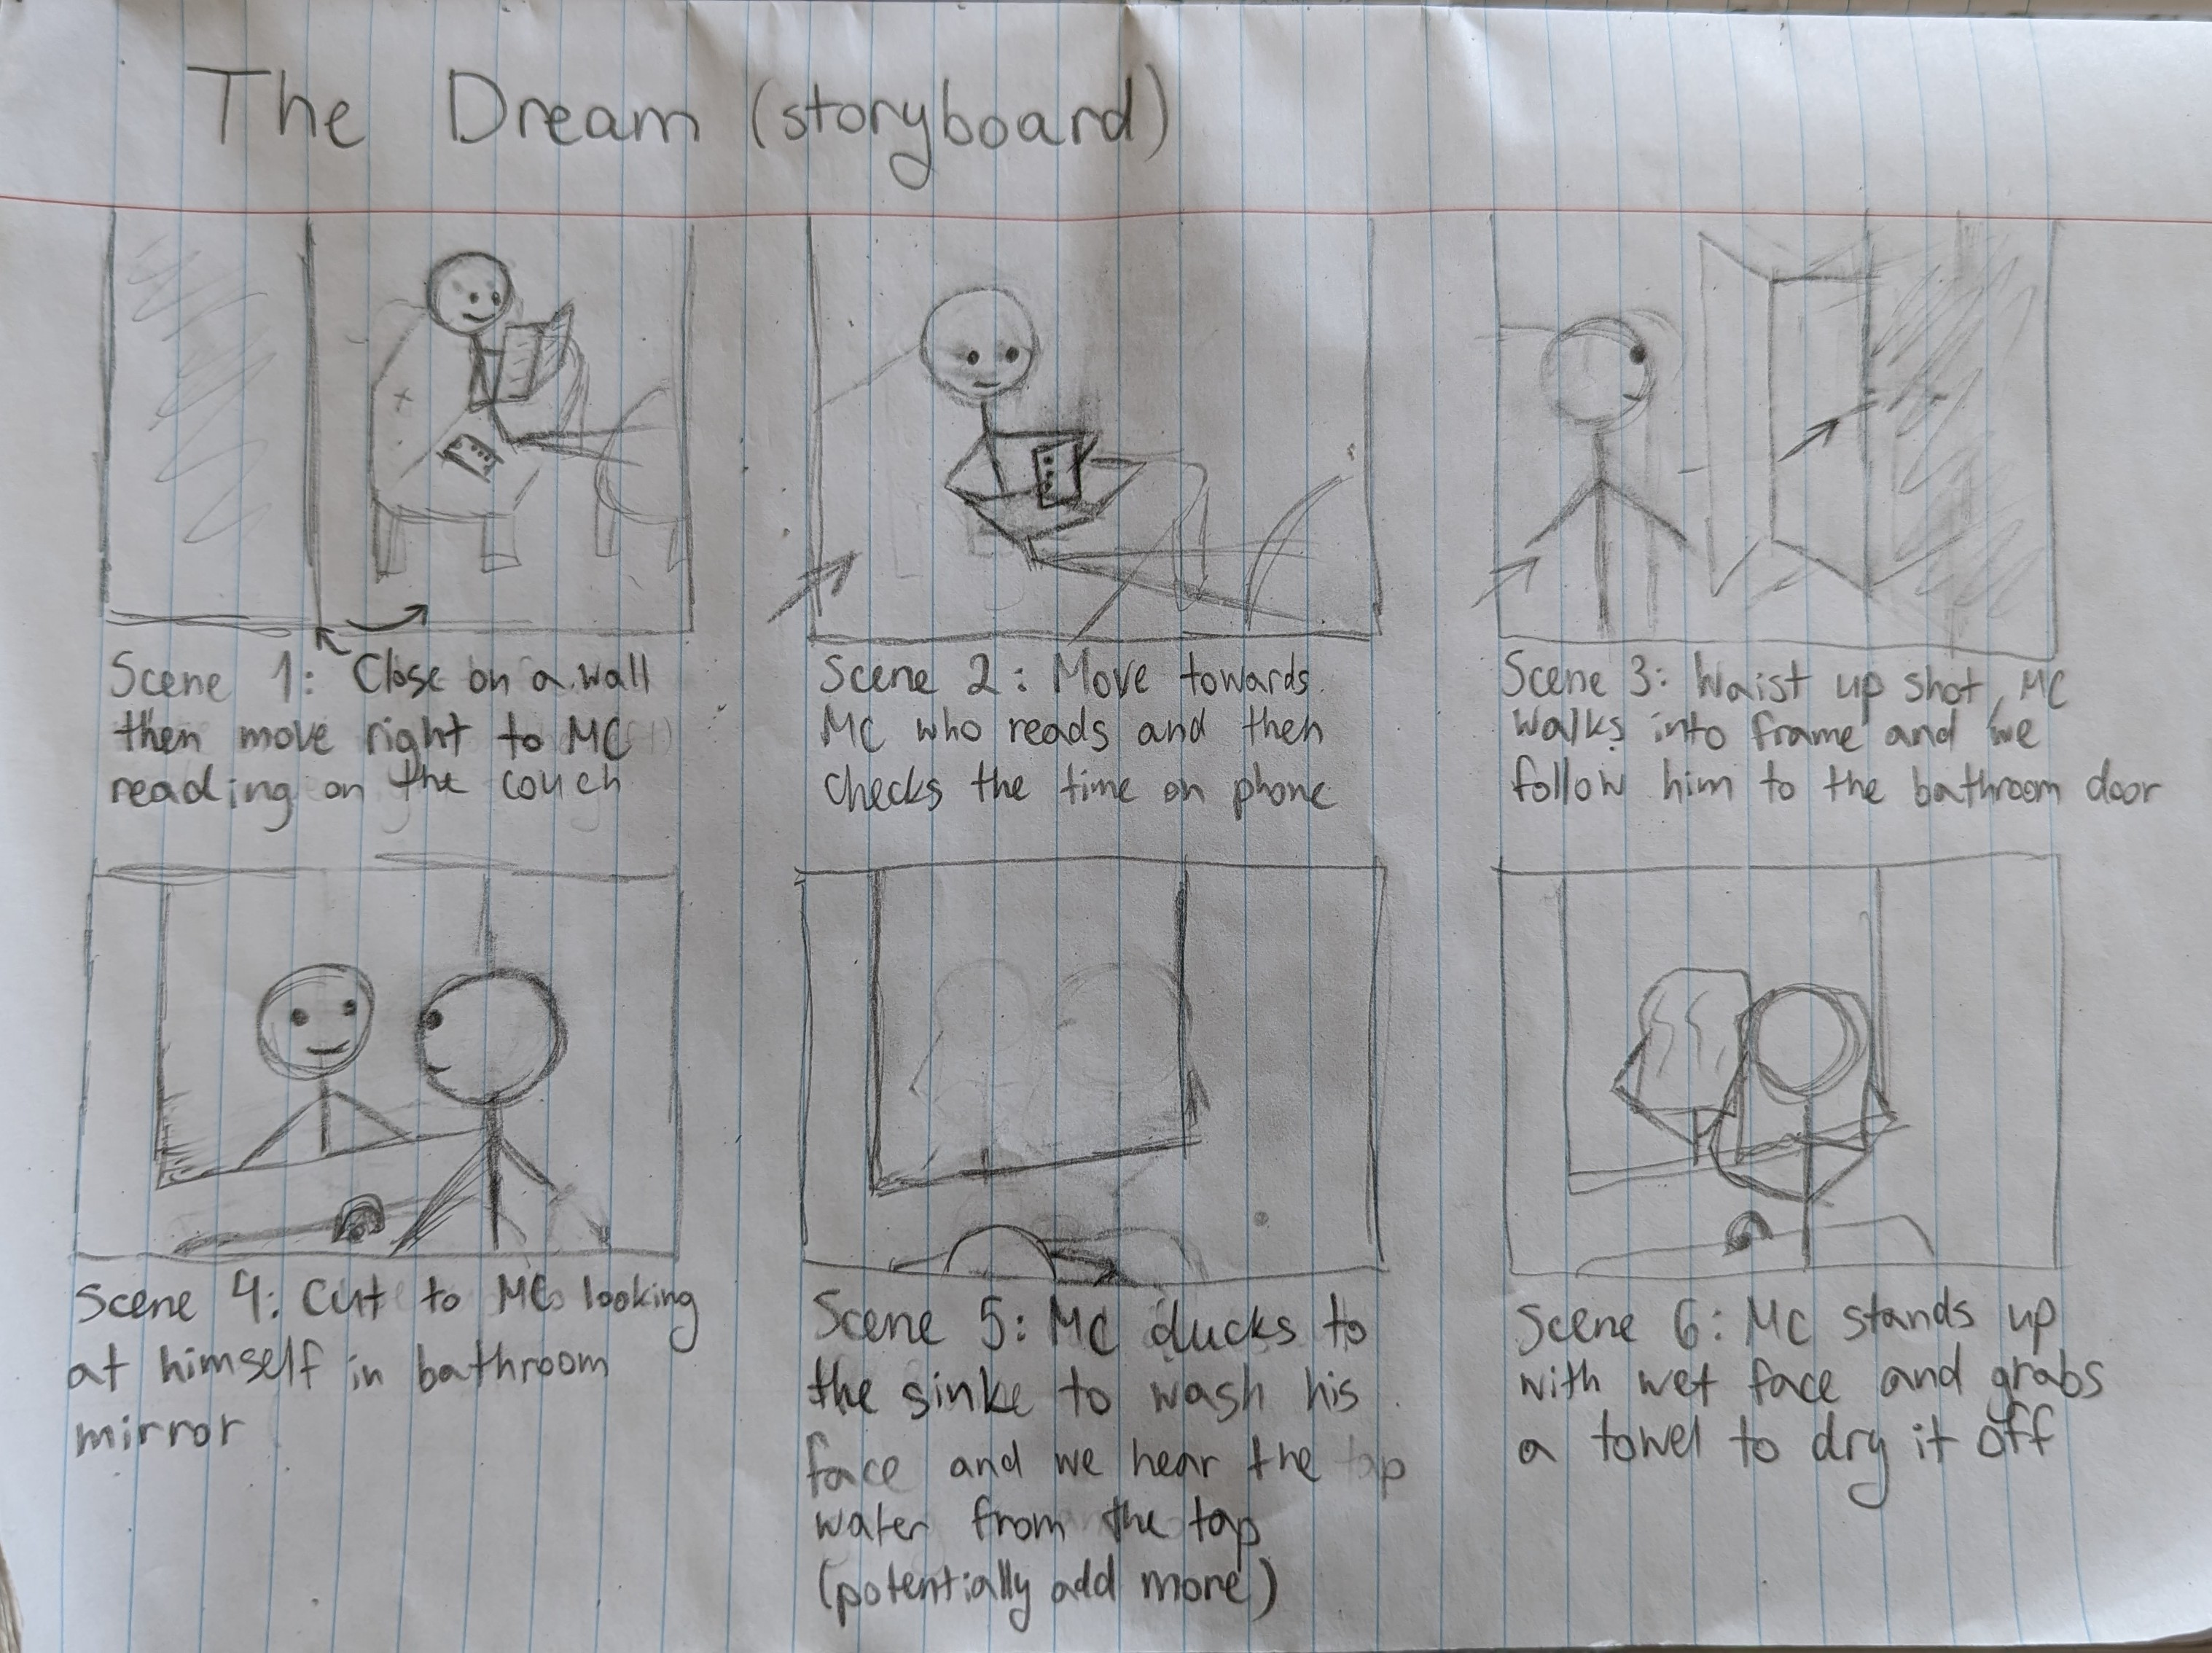 The Dream (storyboard)
Scene 1: Close on a wall
then move right to MC
reading on the couch
Scene 2: Move towards
MC who reads and then
checks the time on phone
Scene 3: Waist up shot, MC
walks into frame and we
follow him to the bathroom door
Scene 4: Cut to MC looking
at himself in bathroom
mirror
Scene 5: MC ducks to
the sinke to wash his
face and we hear the tap
water from the tap
(potentially add more)
Scene 6: MC stands up
with wet face and grabs
a towel to dry it off